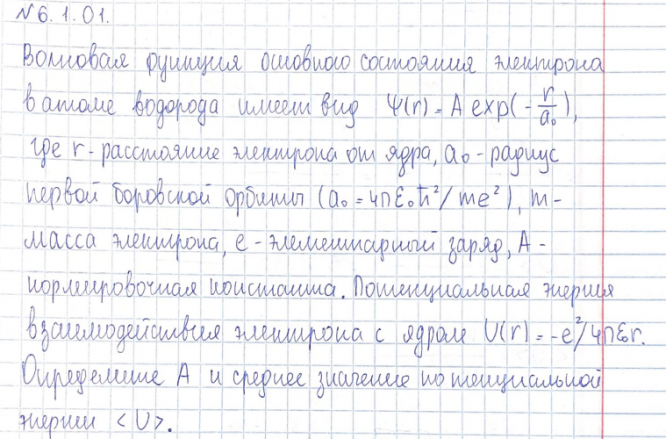 №6.1.01.
Волновая функция основного состояния электрона
в атоме водорода имеет вид Ψ(r) = A exp(-r/a₀),
где r - расстояние электрона от ядра, a₀ - радиус
первой боровской орбиты (a₀ = 4πε₀ħ²/me²), m -
масса электрона, e - элементарный заряд, A -
нормировочная константа. Потенциальная энергия
взаимодействия электрона с ядром U(r) = -e²/4πε₀r.
Определите A и среднее значение потенциальной
энергии <U>.